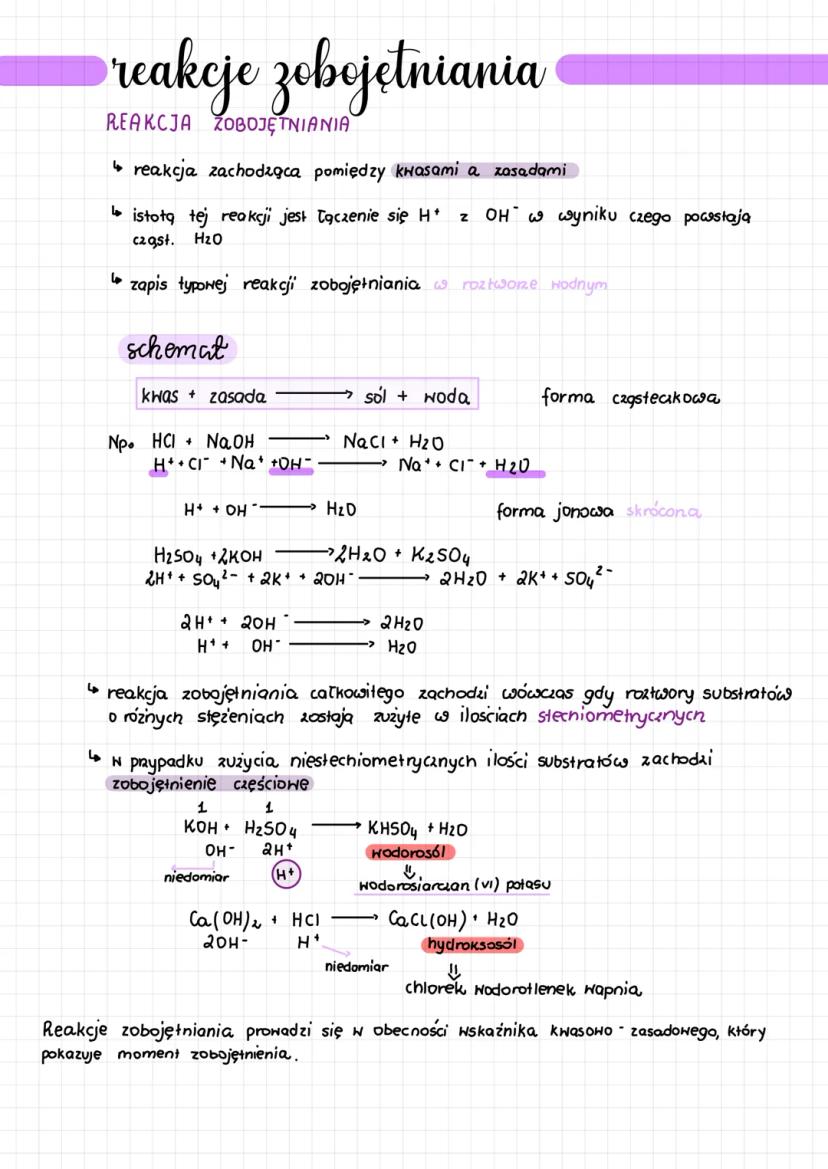 reakcje zobojętniania
REAKCJA ZOBOJĘTNIANIA
↳ reakcja zachodząca pomiędzy kwasami a zasadami
↳ istotą tej reakcji jest łączenie się H⁺ z OH⁻ w wyniku czego powstają
cząst. H₂O
↳ zapis typowej reakcji zobojętniania w roztworze wodnym
schemat
kwas + zasada ⟶ sól + woda forma cząsteczkowa
Np. HCl + NaOH ⟶ NaCl + H₂O
H⁺ + Cl⁻ + Na⁺ + OH⁻ ⟶ Na⁺ + Cl⁻ + H₂O
H⁺ + OH⁻ ⟶ H₂O forma jonowa skrócona
H₂SO₄ + 2KOH ⟶ 2H₂O + K₂SO₄
2H⁺ + SO₄²⁻ + 2K⁺ + 2OH⁻ ⟶ 2H₂O + 2K⁺ + SO₄²⁻
2H⁺ + 2OH⁻ ⟶ 2H₂O
H⁺ + OH⁻ ⟶ H₂O
↳ reakcja zobojętniania całkowitego zachodzi wówczas gdy roztwory substratów
o różnych stężeniach zostają zużyte w ilościach stechiometrycznych
↳ w przypadku zużycia niestechiometrycznych ilości substratów zachodzi
zobojętnienie częściowe
1 1
KOH + H₂SO₄ ⟶ KHSO₄ + H₂O
OH⁻ 2H⁺ wodorosól
niedomiar H⁺ ⇓
wodorosiarczan (VI) potasu
Ca(OH)₂ + HCl ⟶ CaCl(OH) + H₂O
2OH⁻ H⁺ hydroksosól
niedomiar ⇓
chlorek wodorotlenek wapnia
Reakcje zobojętniania prowadzi się w obecności wskaźnika kwasowo - zasadowego, który
pokazuje moment zobojętnienia.